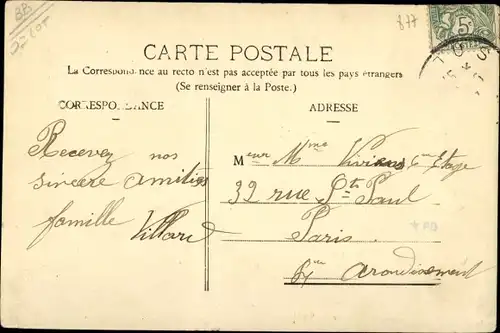 BB
877
5c
CARTE POSTALE
La Correspondance au recto n'est pas acceptée par tous les pays étrangers
(Se renseigner à la Poste.)
CORRESPONDANCE
ADRESSE
Recevez nos
sincere amitiés
famille
Villard
Meur Mme Viviens 6me Etage
32 rue St Paul
Paris
arondisement